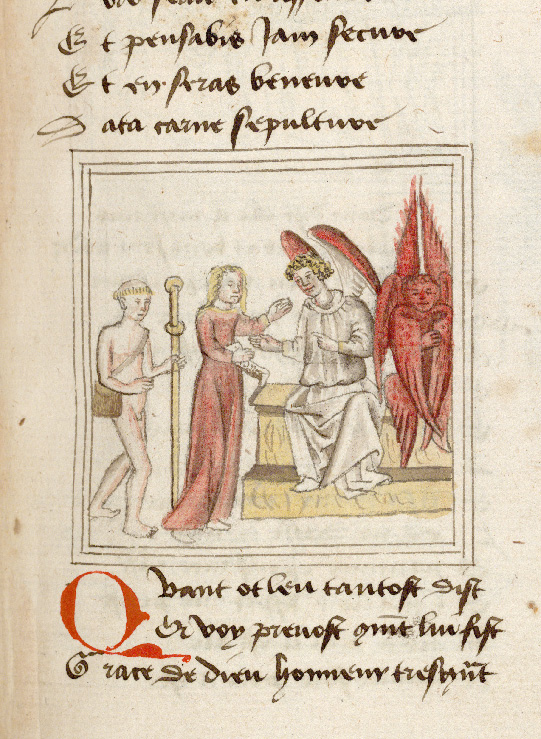 Et pensabis Jam secure
Et en seras beneure
Data carne sepulture
Quant ot leu tantost dist
Er voy prevost q̄mt lui fist
Grace de dieu honneur